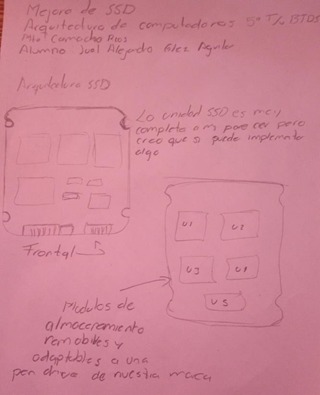 Mejora de SSD
Arquitectura de computadoras 5° T/V
Mtro Camacho Rios
Alumno: Juel Alejandro
Arquitectura SSD
La unidad SSD es muy
completa a mi parecer pero
creo que si puede implementar
algo
Frontal
U1 U2
U3 U4
U5
Modulos de
almacenamiento
removibles y
adaptables a una
pen drive de nuestra marca